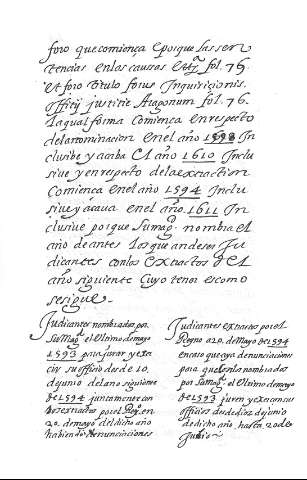 foro que comiença E porque las sen
tencias en las causas etc.ª fol. 76.
et foro titulo forus Inquisitionis.
officij justitie Aragonum fol. 76.
la qual forma comiença en respecto
de la nominacion en el año 1593 In
clusibe y acaba El año 1610 Inclu
siue y en respecto de la extraction
comiença en el año 1594 Inclu
siue y acaua en el año 1611 In
clusiue porque su mag.ᵈ nombra el
año de antes los que an de ser Ju
dicantes con los Extractos de El
año siguiente Cuyo tenor es como
se sigue.
Judicantes nombrados por
Su Mag.ᵈ el Ultimo de mayo
1593 para jurar y exer
cir su officio desde 10.
de junio del año siguiente
de 1594 juntamente con
los extractos por el Rey.º en
20. de mayo del dicho año
habiendo denunciaciones
Judicantes extractos por el
Reyno a 20. de Mayo de 1594
en caso que aya denunciaciones
para que con los nombrados
por su Mag.ᵈ el Ultimo de mayo
de 1593 juren y exerzan sus
officios desde diez de junio
de dicho año, hasta 20 de
Junio